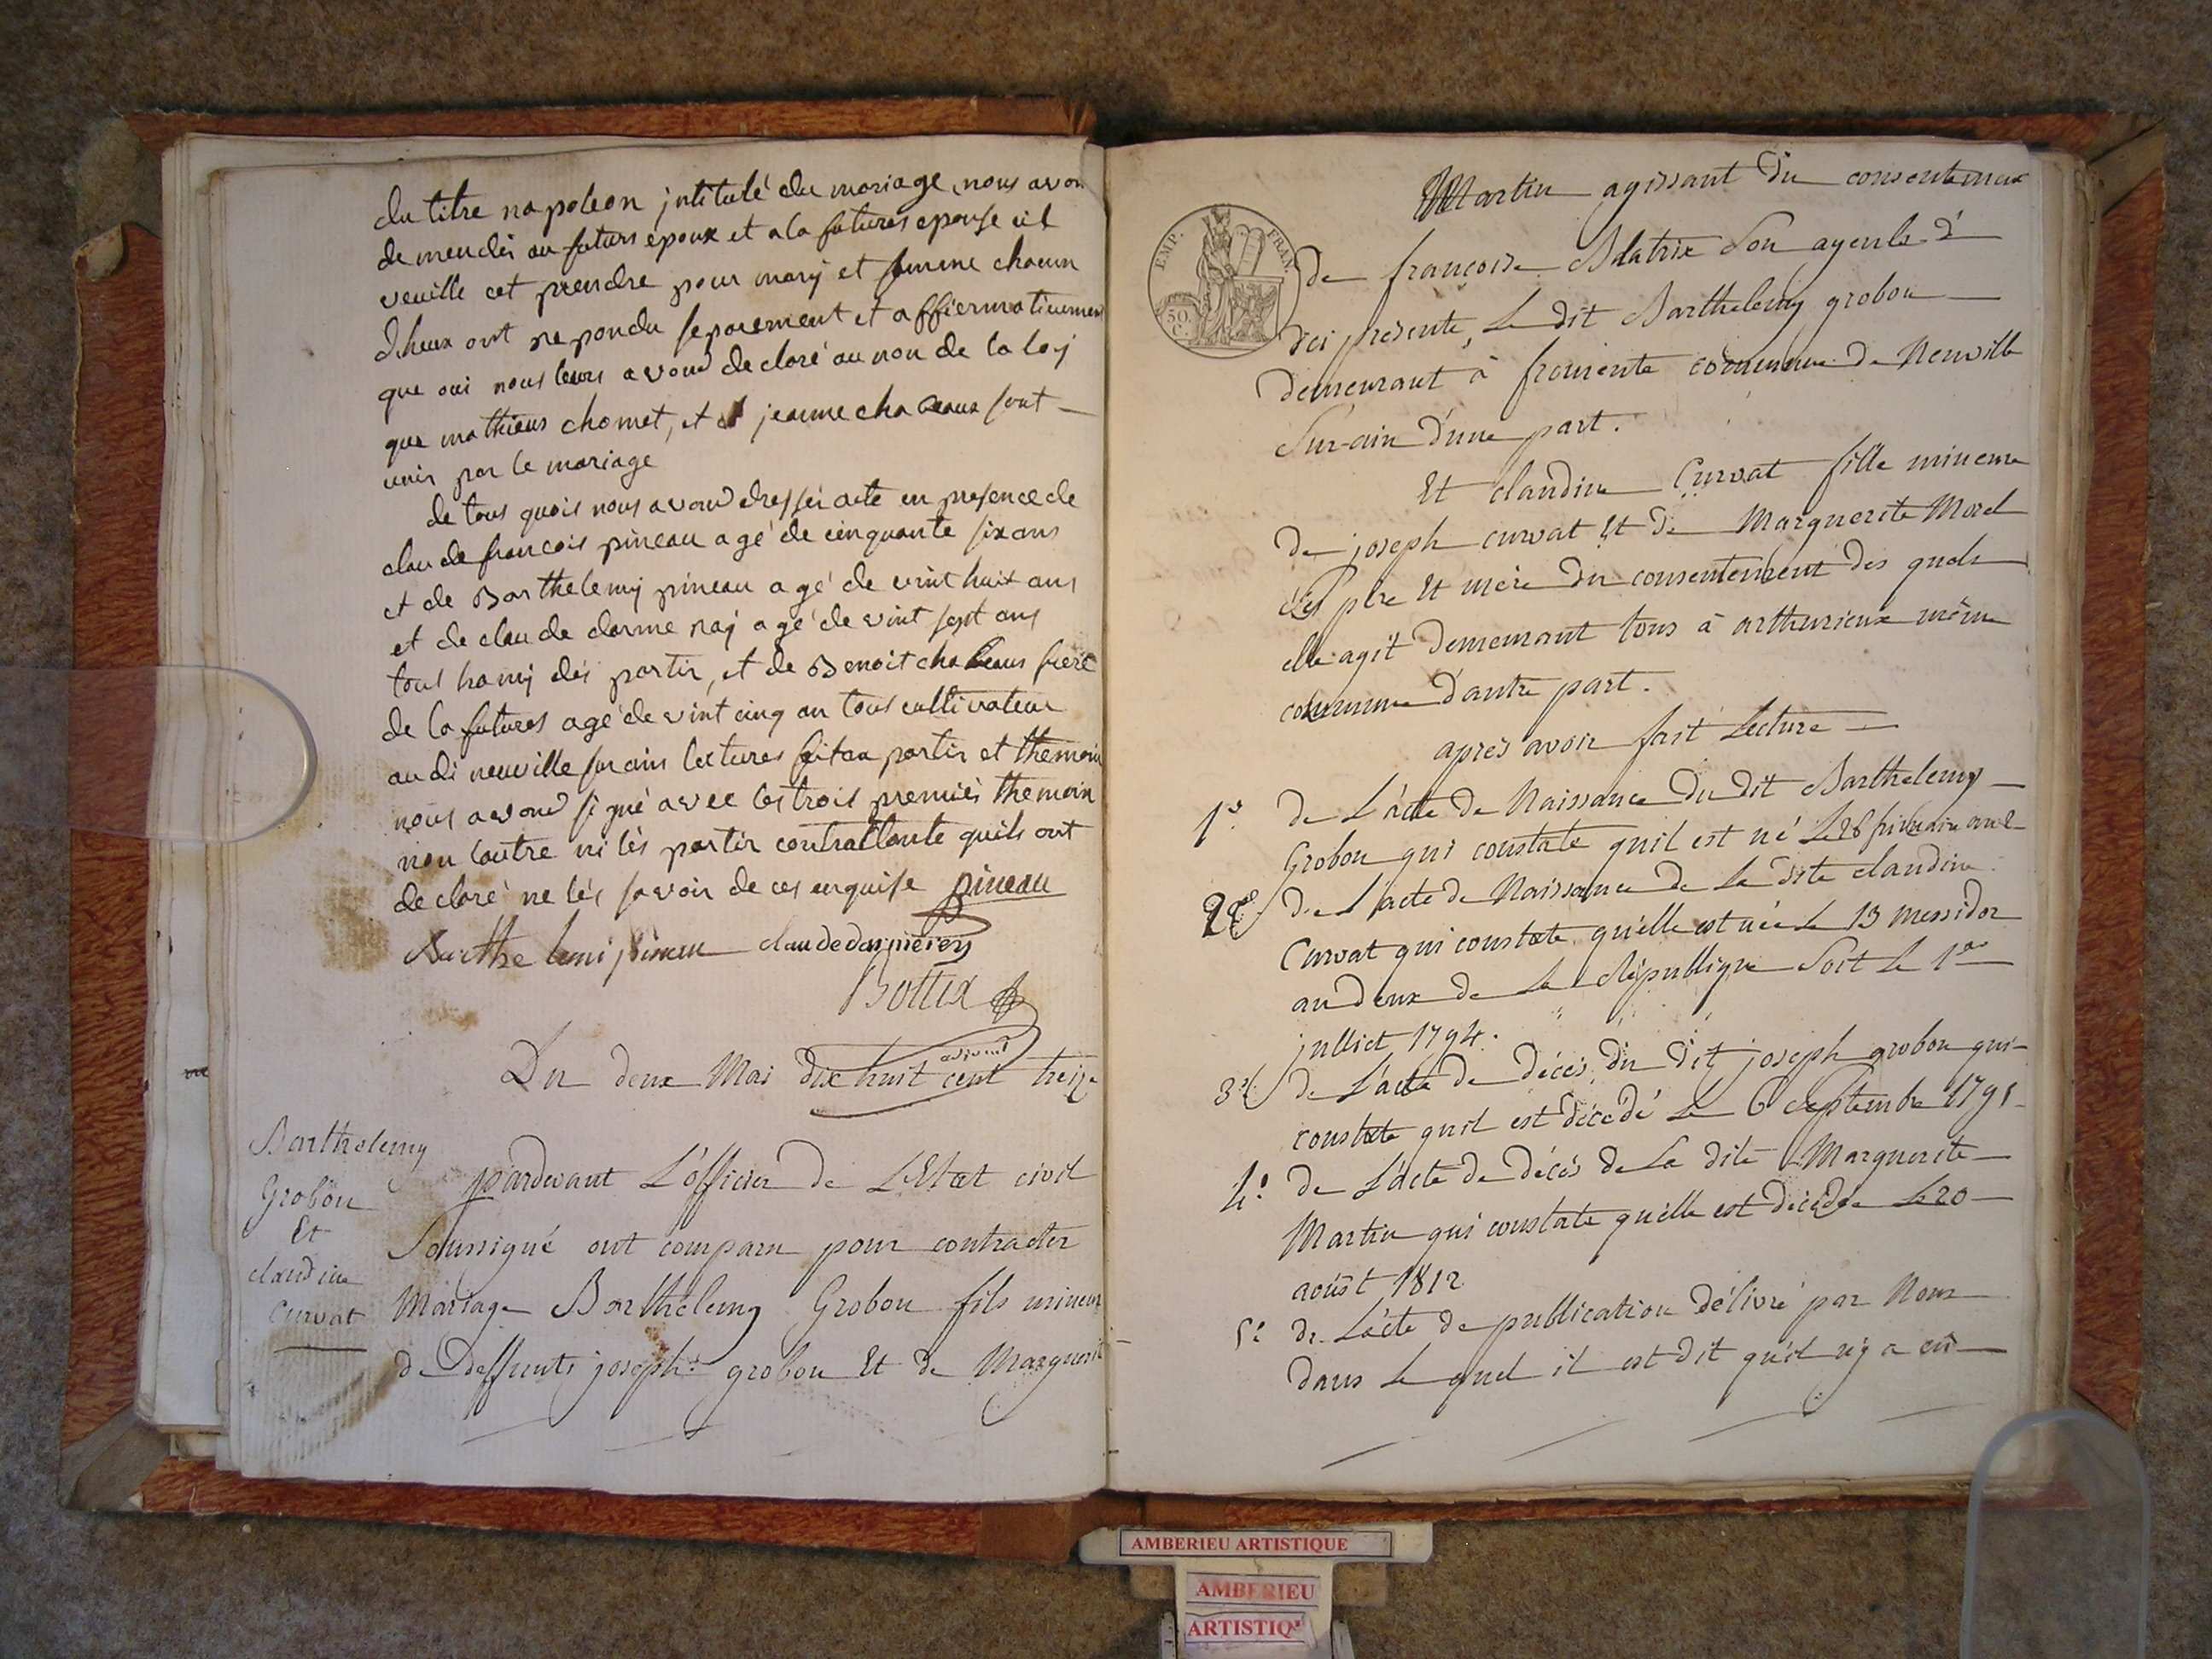 du titre napoleon jntitulé du mariage nous avon
demendés au futurs epoux et a la futures epouse cil
veuille cet prendre pour marij et femme chacun
dheux ont repondu separement et affiermativement
que oui nous leurs avond declaré au non de la loij
que mathieus chomet, et jeanne chabeaux sont
unis par le mariage
de tous quois nous avond dressés acte en presence de
claude francois pineau agé de cinquante six ans
et de Barthelemij pineau agé de vint huit ans
et de claude darme raij agé de vint sept ans
tous hamij dés partis, et de Benoit chabeaus frere
de la futures agé de vint cinq an tous cultivateur
au di neuville sur ains lectures fait au partis et themoin
nous avond signé avec les trois premiés themoin
non lautre ni lés partis contractante quils ont
declaré ne lés savoir de ces enquise pineau
Barthelemi pineau claude darmerey
Bottex
adjoint
Du deux Mai dix huit cent treize
Barthelemy
Grobon
Et
claudine
Curvat
pardevant L'officier de L'Etat civil
Soussigné ont comparu pour contracter
Mariage Barthelemy Grobon fils mineur
de deffunts joseph grobon Et de Marguerite
EMP. FRAN.
50
C.
Martin agissant du consentement
de françoise Blatrix Son ayeule à
ici presente, Le dit Barthelemy grobon
demeurant à fromente commune de Neuville
Sur-ain d'une part.
Et claudine Curvat fille mineure
de joseph curvat Et de Marguerite Morel
Ses père Et mère du consentement des quels
elle agit demeurant tous à arthurieux même
commune d'autre part.
après avoir fait Lecture
1º. de L'acte de Naissance du dit Barthelemy
Grobon qui constate quil est né Le 26 frimaire an 2
2º. de L'acte de Naissance de La dite claudine
Curvat qui constate qu'elle est née Le 13 messidor
an deux de La République Soit Le 1er
juillet 1794.
3º. de L'acte de décès du dit joseph grobon qui
constate quil est décédé Le 6 Septembre 1791
4º. de L'acte de décès de La dite Marguerite
Martin qui constate qu'elle est décédée Le 20
août 1812
5º. de L'acte de publication délivré par Nous
dans Le quel il est dit qu'il n'y a eû
AMBERIEU ARTISTIQUE
AMBERIEU
ARTISTIQ